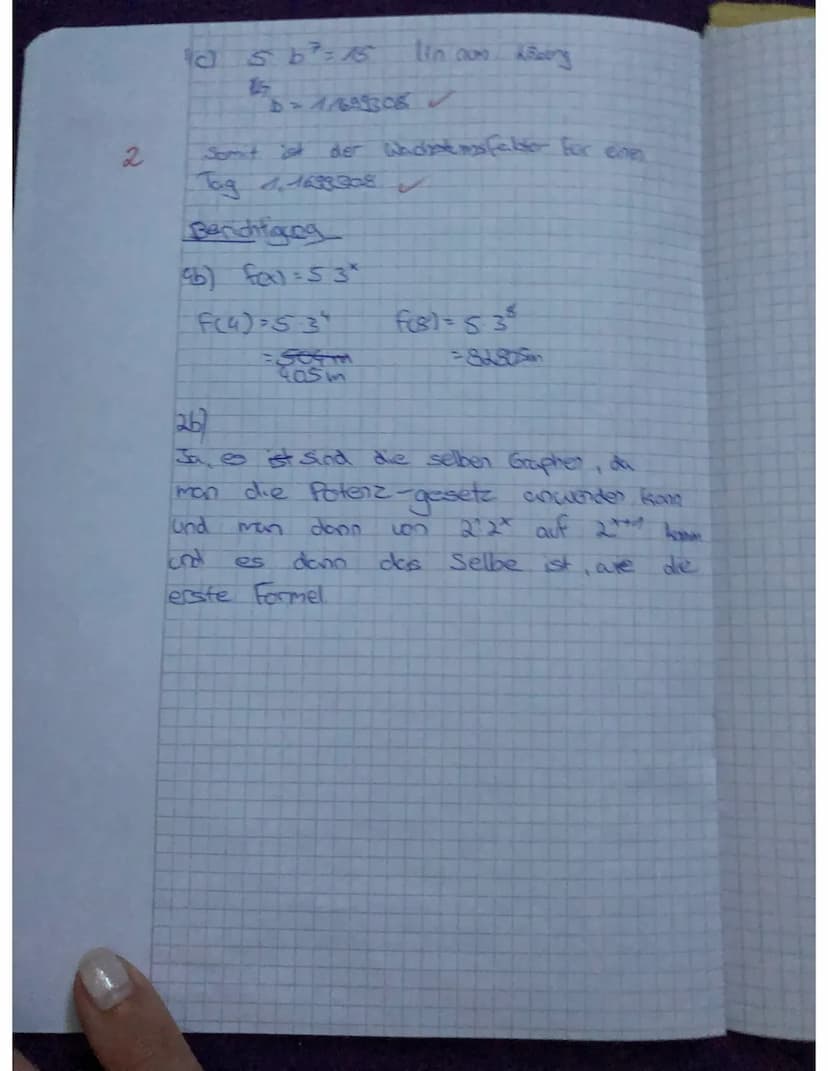 4c) 5 b⁷ = 15 lin aus
b = 1,1699308 ✓
2
Somit ist der Wachstumsfaktor für einen
Tag 1,1699308 ✓
Berichtigung
4b) f(x) = 5 3ˣ
f(4) = 5 3⁴ f(8) = 5 3⁸
= 504m = 32805m
405m
2b)
Ja, es ist sind die selben Graphen, da
man die Potenz-gesetz anwenden kann
und man dann von 2¹ 2ˣ auf 2ˣ⁺¹ kommt
und es dann das Selbe ist, wie die
erste Formel